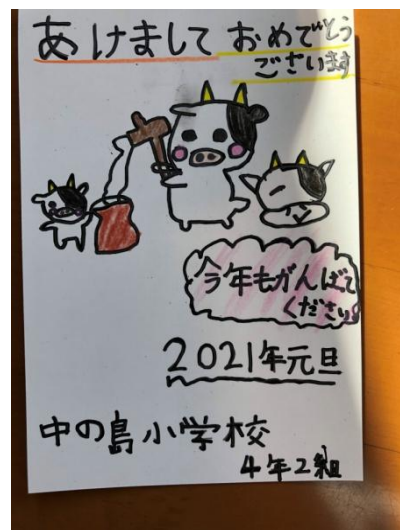 あけまして おめでとう
ございます
今年もがんばて
ください
2021年元旦
中の島小学校
4年2組